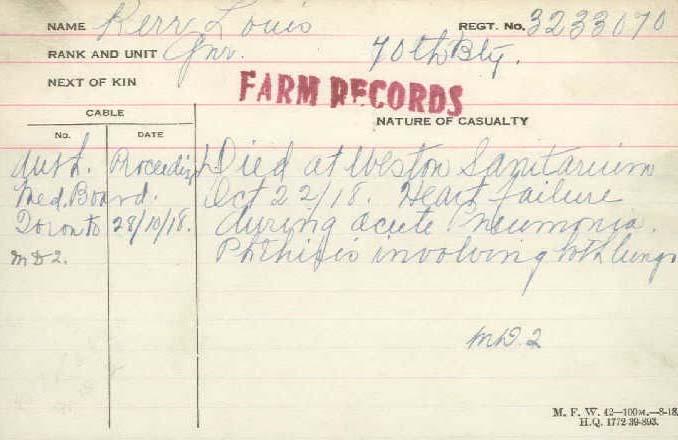 NAME Kerr Louis REGT. No. 3233070
RANK AND UNIT Gnr. 70th Bty.
NEXT OF KIN
FARM RECORDS
CABLE NATURE OF CASUALTY
No. DATE
Auth. Proceedings Died at Weston Sanitarium
Med. Board. Oct 22/18. Heart failure
Toronto 28/10/18. during acute Pneumonia.
MD2. Phthisis involving both lungs
M.D.2
M. F. W. 42—100M.—8-18.
H.Q. 1772-39-893.